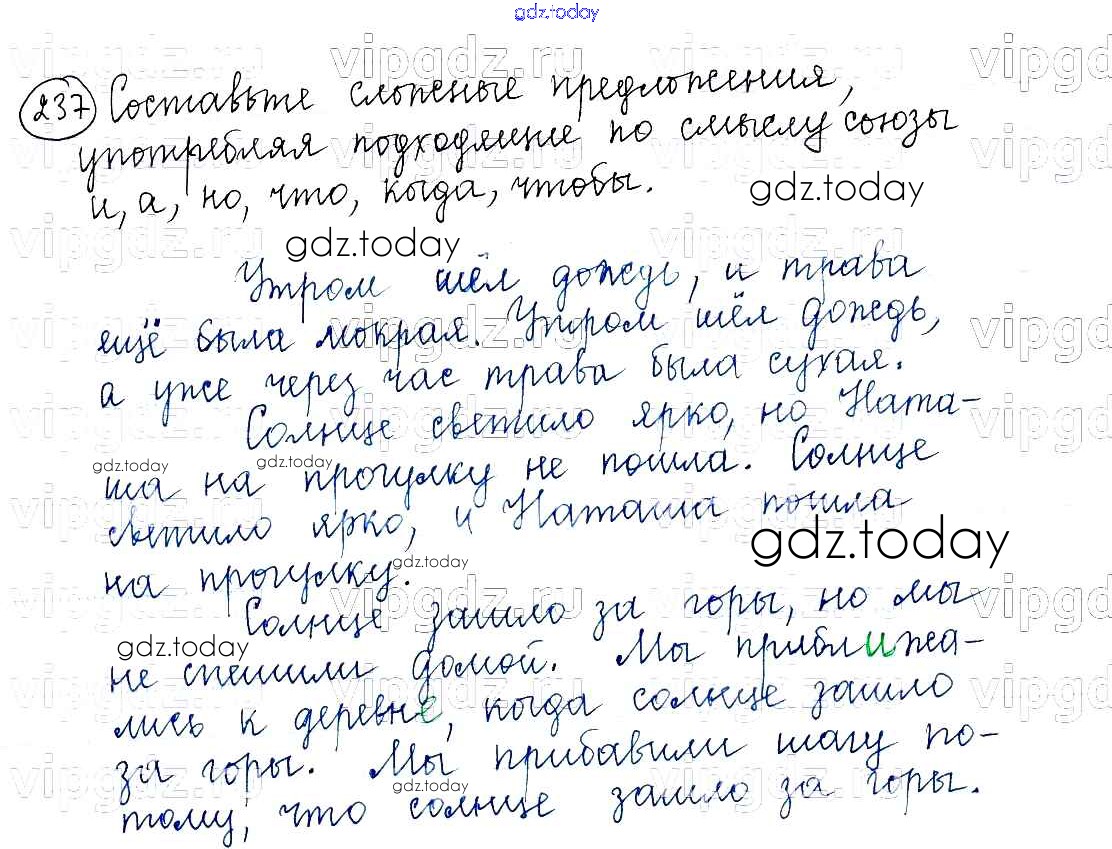 gdz.today
237 Составьте сложные предложения,
употребляя подходящие по смыслу союзы
и, а, но, что, когда, чтобы.
gdz.today
gdz.today
Утром шёл дождь, и трава
ещё была мокрая. Утром шёл дождь,
а уже через час трава была сухая.
Солнце светило ярко, но Ната-
gdz.today gdz.today
ша на прогулку не пошла. Солнце
светило ярко, и Наташа пошла
gdz.today
на прогулку.
gdz.today
Солнце зашло за горы, но мы
gdz.today
не спешили домой. Мы приближа-
лись к деревне, когда солнце зашло
за горы. Мы прибавили шагу по-
gdz.today
тому, что солнце зашло за горы.